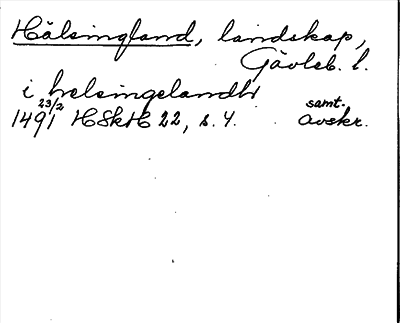 Hälsingland, landskap,
Gävleb. l.
i helsingelandh
1491 23/2 HSkH 22, s. 4. samt. avskr.